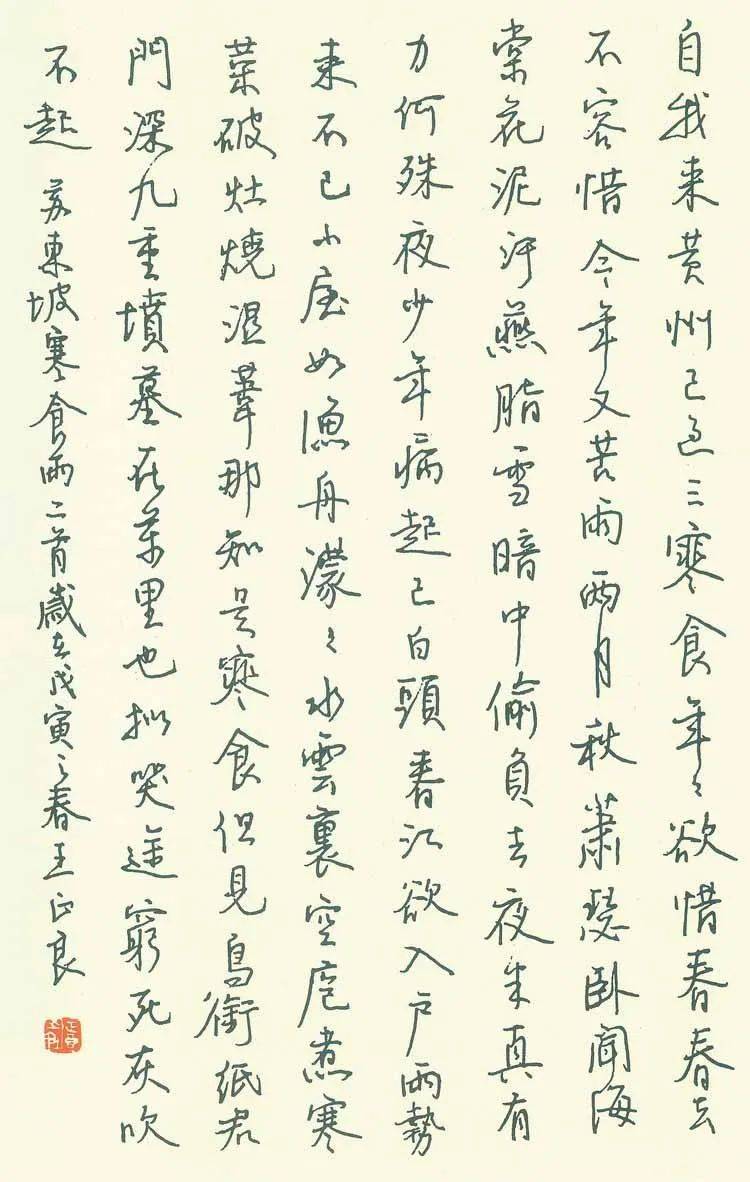 自我来黄州已過三寒食年々欲惜春春去
不容惜今年又苦雨兩月秋蕭瑟卧聞海
棠花泥汙燕脂雪暗中偷負去夜半真有
力何殊夜少年病起已白頭春江欲入戶雨勢
来不已小屋如漁舟濛々水雲裏空庖煮寒
菜破灶燒濕葦那知是寒食但見烏銜紙君
門深九重墳墓在萬里也擬哭途窮死灰吹
不起 蘇東坡寒食雨二首歲在戊寅之春王正良